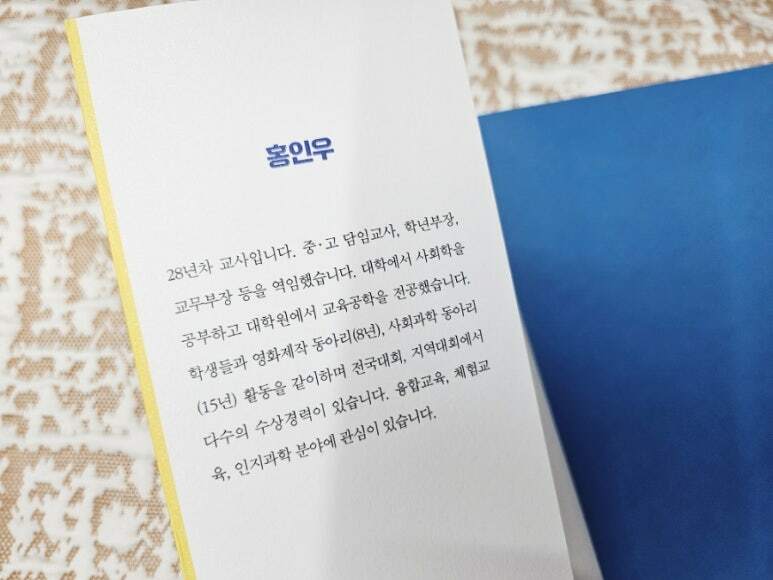 홍인우
28년차 교사입니다. 중·고 담임교사, 학년부장,
교무부장 등을 역임했습니다. 대학에서 사회학을
공부하고 대학원에서 교육공학을 전공했습니다.
학생들과 영화제작 동아리(8년), 사회과학 동아리
(15년) 활동을 같이하며 전국대회, 지역대회에서
다수의 수상경력이 있습니다. 융합교육, 체험교
육, 인지과학 분야에 관심이 있습니다.